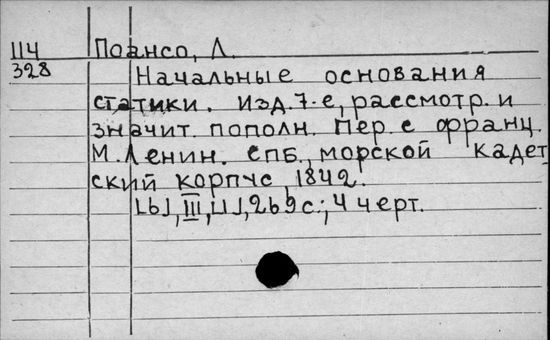 114 Поансо, Л.
328 Начальные основания
статики. Изд. 7-е, рассмотр. и
значит. пополн. Пер. с франц.
М. Ленин. СПБ., морской кадет
ский корпус, 1842.
[6], III, [1], 269 с.; 4 черт.